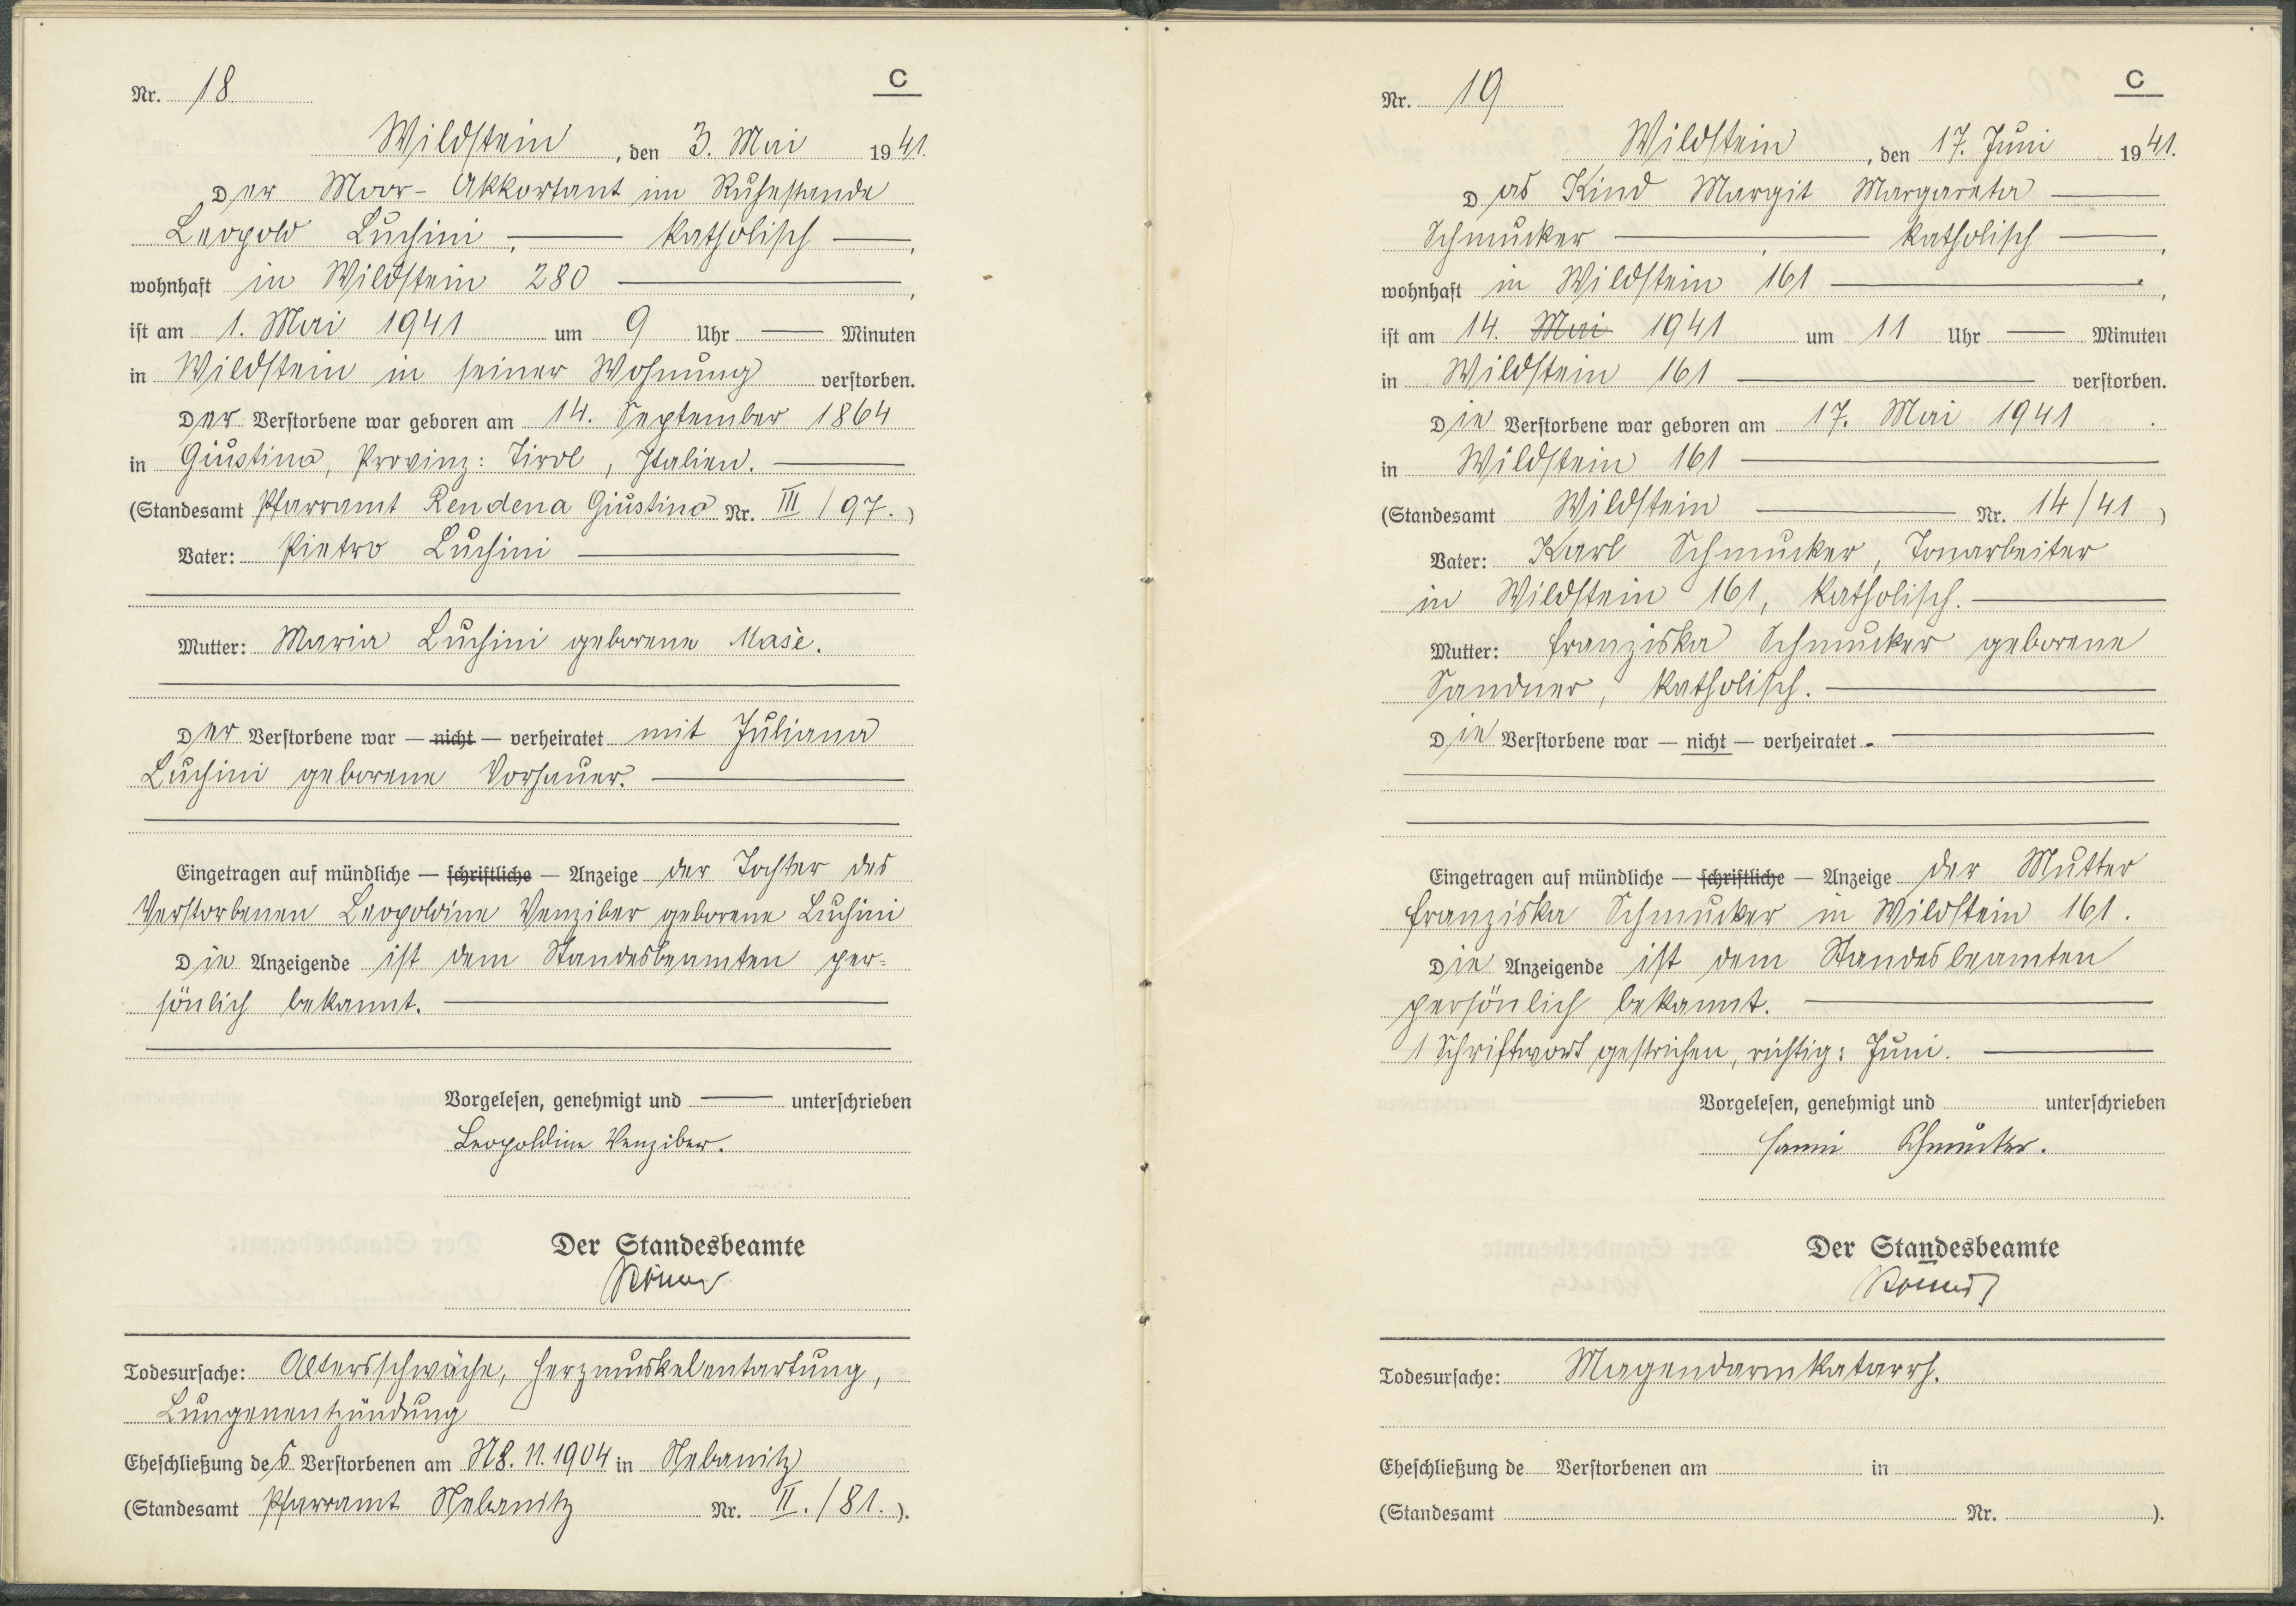 Nr. 18
C
Wildstein, den 3. Mai 1941.
Der Moor-Akkortant im Ruhestande
Leopold Luchini, — katholisch —,
wohnhaft in Wildstein 280 —,
ist am 1. Mai 1941 um 9 Uhr — Minuten
in Wildstein in seiner Wohnung verstorben.
Der Verstorbene war geboren am 14. September 1864
in Giustina, Provinz: Tirol, Italien. —
(Standesamt Pfarramt Rendena Giustina Nr. III/97.)
Vater: Pietro Luchini —
Mutter: Maria Luchini geborene Masè.
Der Verstorbene war — nicht — verheiratet mit Juliana
Luchini geborene Vorhauer. —
Eingetragen auf mündliche — schriftliche — Anzeige der Tochter des
Verstorbenen Leopoldine Venziber geborene Luchini
Die Anzeigende ist dem Standesbeamten per=
sönlich bekannt. —
Vorgelesen, genehmigt und — unterschrieben
Leopoldine Venziber.
Der Standesbeamte
Todesursache: Altersschwäche, Herzmuskelentartung,
Lungenentzündung
Eheschließung des Verstorbenen am 11.1904 in Nebanitz
(Standesamt Pfarramt Nebanitz Nr. II./81.).
Nr. 19
C
Wildstein, den 17. Juni 1941.
Das Kind Margit Margareta —
Schmucker —, — katholisch —,
wohnhaft in Wildstein 161 —,
ist am 14. Mai 1941 um 11 Uhr — Minuten
in Wildstein 161 — verstorben.
Die Verstorbene war geboren am 17. Mai 1941.
in Wildstein 161 —
(Standesamt Wildstein — Nr. 14/41)
Vater: Karl Schmucker, Tonarbeiter
in Wildstein 161, katholisch. —
Mutter: Franziska Schmucker geborene
Sandner, katholisch. —
Die Verstorbene war — nicht — verheiratet. —
Eingetragen auf mündliche — schriftliche — Anzeige der Mutter
Franziska Schmucker in Wildstein 161.
Die Anzeigende ist dem Standesbeamten
persönlich bekannt. —
1 Schriftwort gestrichen, richtig: Juni. —
Vorgelesen, genehmigt und unterschrieben
Fanni Schmucker.
Der Standesbeamte
Todesursache: Magendarmkatarrh.
Eheschließung de Verstorbenen am in
(Standesamt Nr. ).